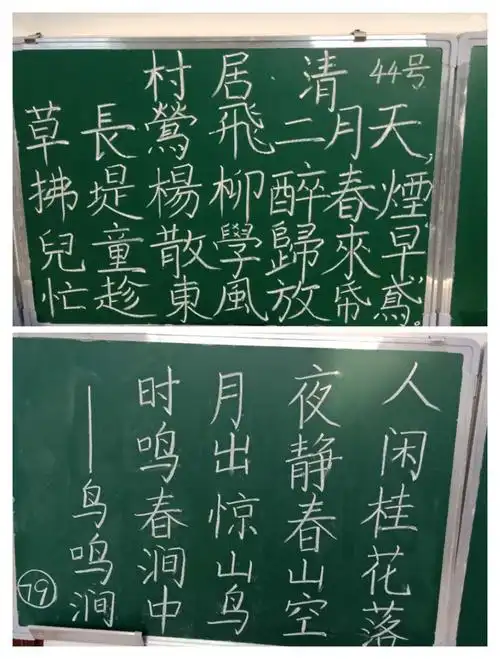 村居·清 44号
草長鶯飛二月天，
拂堤楊柳醉春煙，
兒童散學歸來早，
忙趁東風放帋鳶。
人闲桂花落
夜静春山空
月出惊山鸟
时鸣春涧中
——鸟鸣涧
79